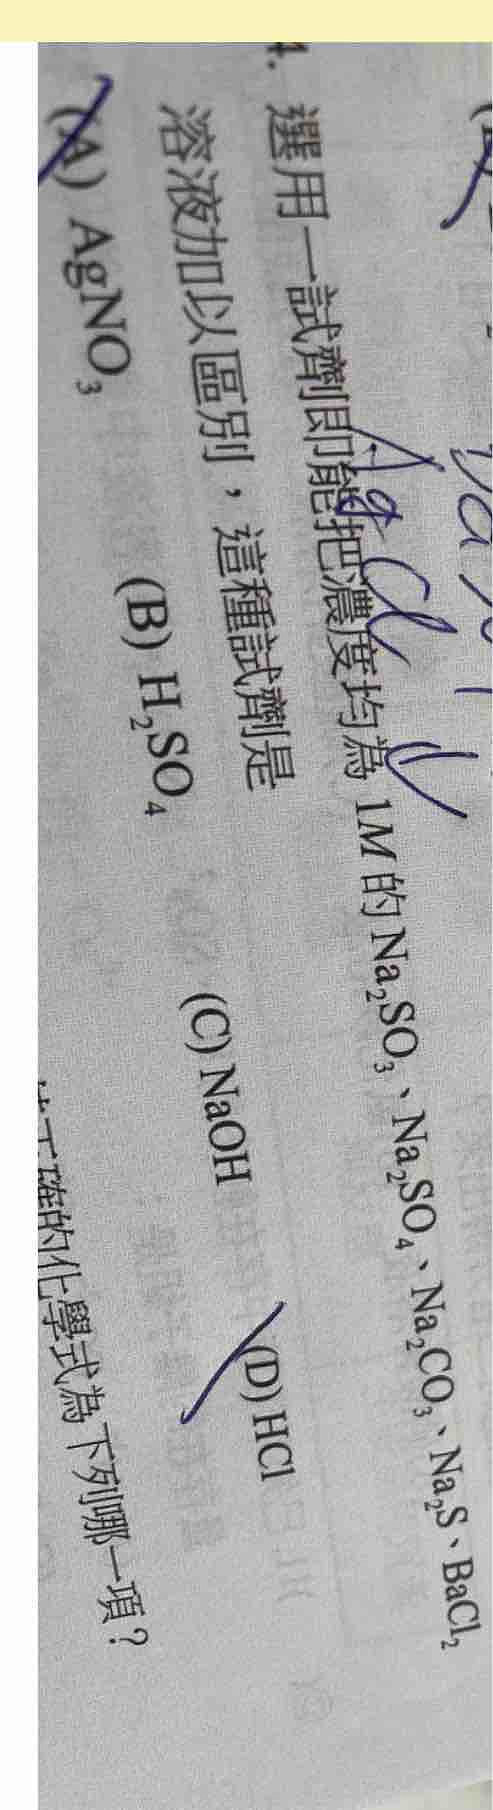 4. 選用一試劑即能把濃度均為 1M 的 Na₂SO₃、Na₂SO₄、Na₂CO₃、Na₂S、BaCl₂
溶液加以區別，這種試劑是
(A) AgNO₃ (B) H₂SO₄ (C) NaOH (D) HCl
正確的化學式為下列哪一項？
AgCl↓